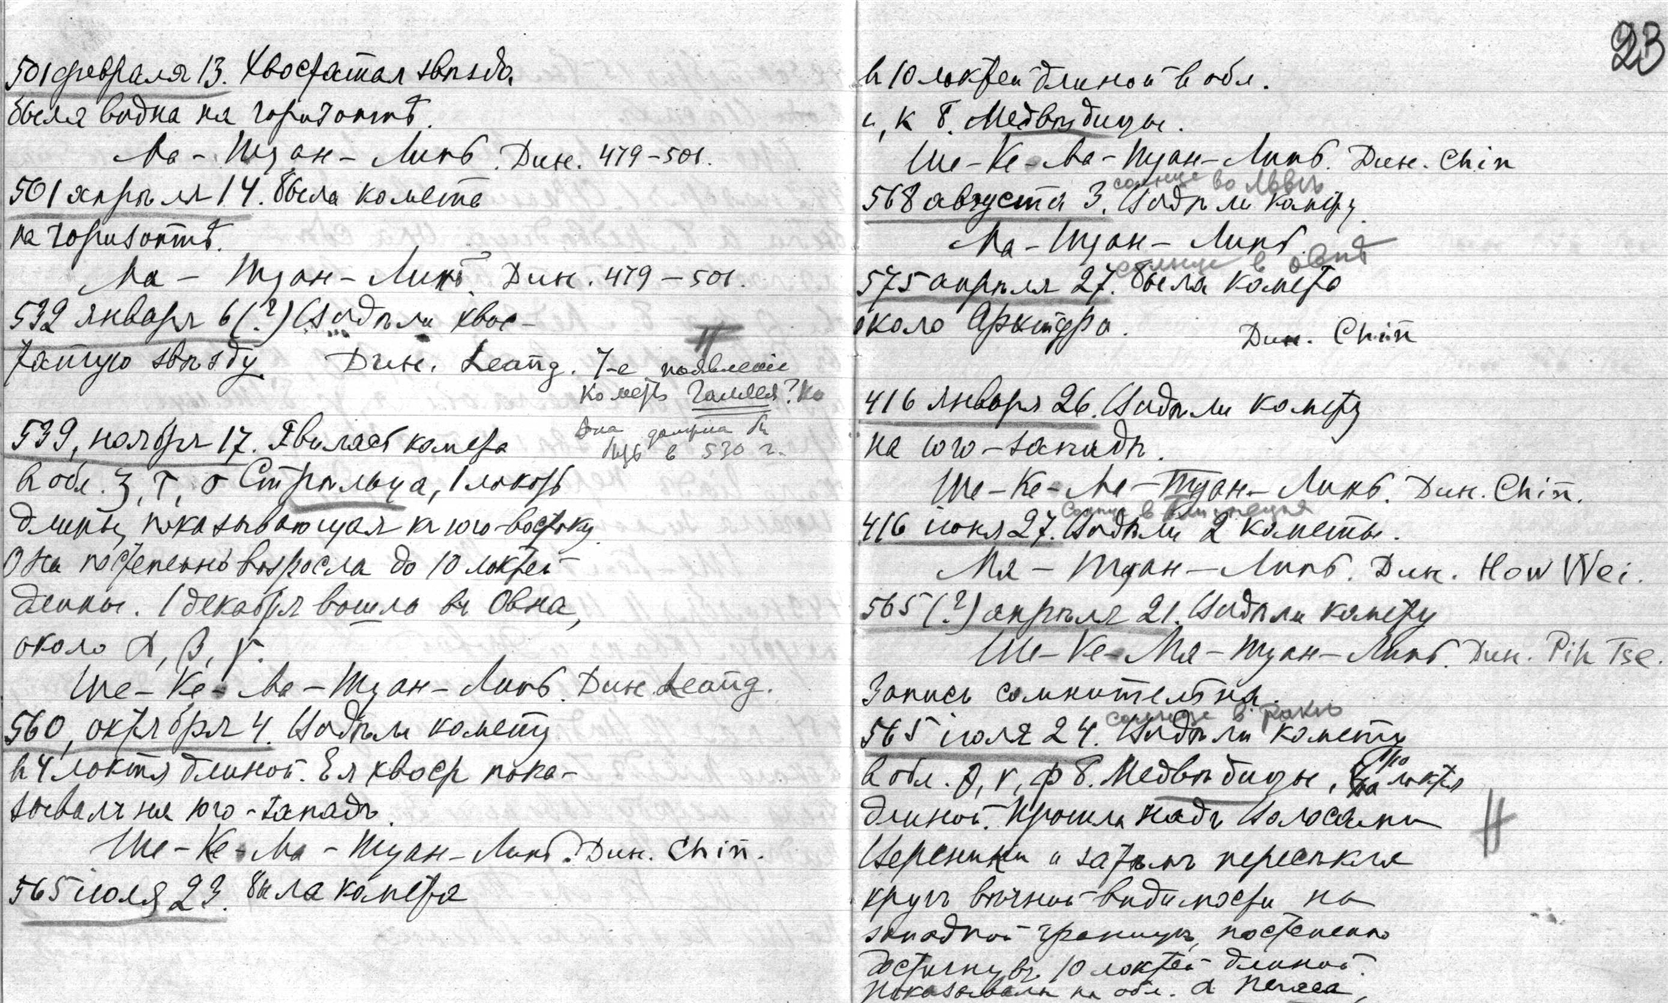 501 февраля 13. Хвостатая звѣзда
была видна на горизонтѣ.
Ма-Туан-Линъ. Дин. 479-501.
501 апрѣля 14. Была комета
на горизонтѣ.
Ма - Туан-Линъ. Дин. 479-501.
532 января 6 (?) Видѣли хвос-
татую звѣзду Дин. Leang. 7-е появленіе
кометы Галлея?
Она должна
в 530 г.
539, ноября 17. Явилась комета
в обл. ζ, τ, σ Стрѣльца, 1 локоть
длины, показывающая к юго-востоку.
Она постепенно возросла до 10 локтей
длины. 1 декабря вошла въ Овна,
около α, β, γ.
Ше-Ке-Ма-Туан-Линъ Дин. Leang.
560, октября 4. Видѣли комету
в 4 локтя длиной. Ея хвост пока-
зывалъ на юго-западъ.
Ше-Ке-Ма-Туан-Линъ. Дин. Chin.
565 іюля 23. Была комета
23
в 10 локтей длиной в обл.
ι, κ Б. Медвѣдицы.
Ше-Ке-Ма-Туан-Линъ. Дин. Chin
солнце во Львѣ
568 августа 3. Видѣли комету
Ма-Туан-Линъ
солнце в Овнѣ
575 апрѣля 27. Была комета
около Арктура. Дин. Chin
416 января 26. Видѣли комету
на юго-западѣ.
Ше-Ке-Ма-Туан-Линъ. Дин. Chin.
Солнце в Близнецах
416 іюня 27. Видѣли 2 кометы.
Ма-Туан-Линъ. Дин. How Wei.
565 (?) апрѣля 21. Видѣли комету
Ше-Ке-Ма-Туан-Линъ. Дин. Pih Tse.
Запись сомнительна.
солнце в Ракѣ
565 іюля 24. Видѣли комету
в обл. θ, ν, φ Б. Медвѣдицы, локтя
длиной. Прошла надъ Волосами
Вереники и затѣмъ пересѣкла
кругъ вѣчной видимости на
западной границѣ, постепенно
достигнувъ 10 локтей длиной.
Показывала на обл. α Пегаса,